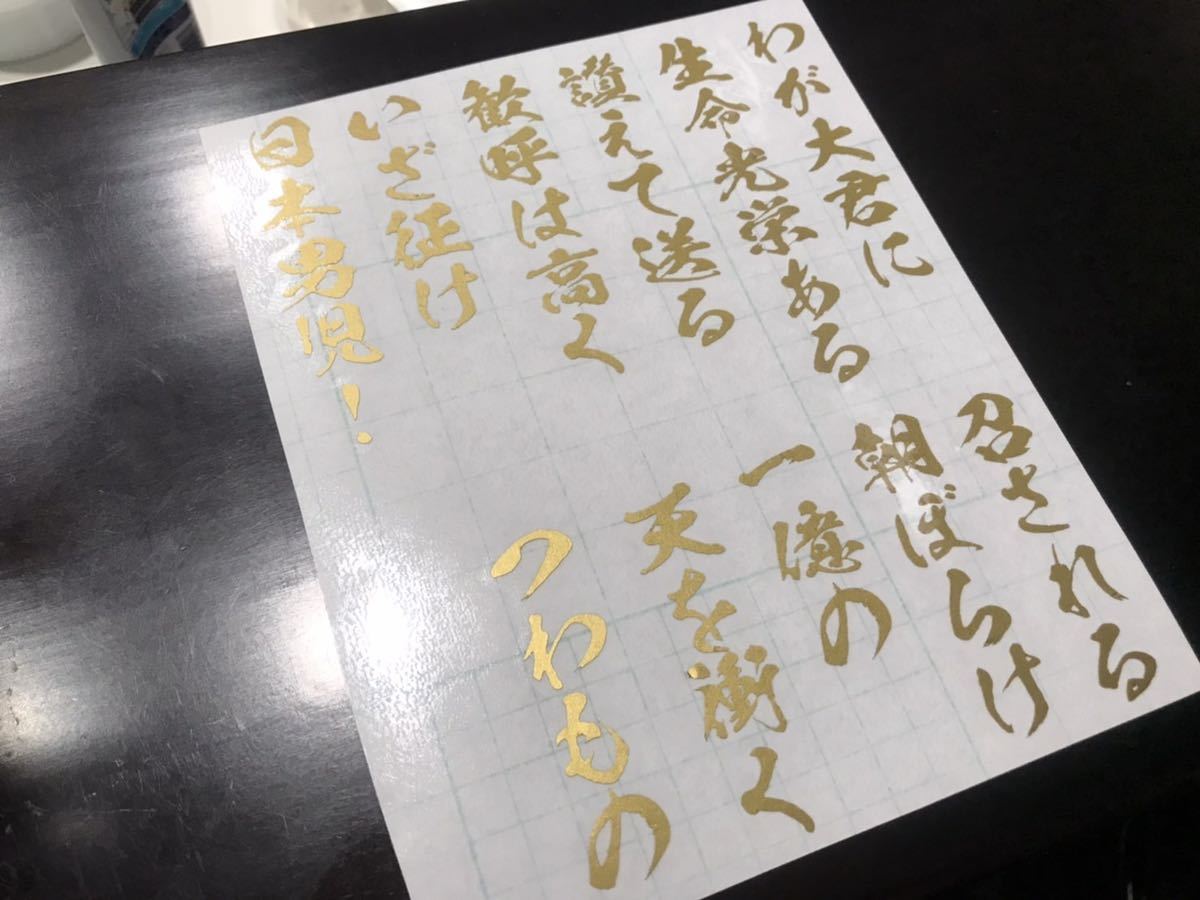 わが大君に 召される
生命光栄ある 朝ぼらけ
讃えて送る 一億の
歓呼は高く 天を衝く
いざ征け つわもの
日本男児！